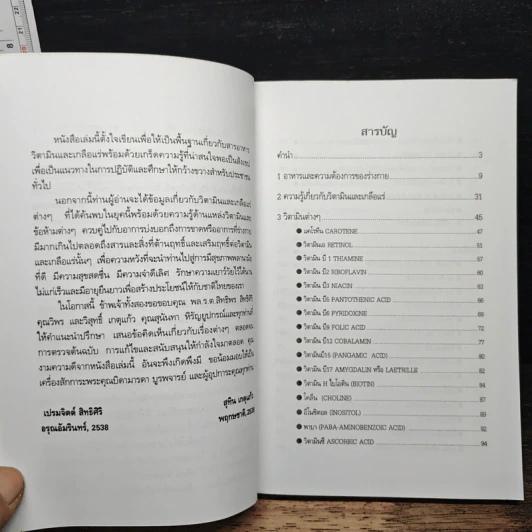 หนังสือเล่มนี้ตั้งใจเขียนเพื่อให้เป็นพื้นฐานเกี่ยวกับสารอาหาร
วิตามินและเกลือแร่พร้อมด้วยเกร็ดความรู้ที่น่าสนใจพอเป็นสังเขป
เพื่อเป็นแนวทางในการปฏิบัติและศึกษาให้กว้างขวางสำหรับประชาชน
ทั่วไป
นอกจากนี้ท่านผู้อ่านจะได้ข้อมูลเกี่ยวกับวิตามินและเกลือแร่
ต่างๆ ที่ได้ค้นพบในยุคนี้พร้อมด้วยความรู้ด้านแหล่งวิตามินและ
ข้อห้ามต่างๆ ควบคู่ไปกับการบ่งบอกถึงการขาดหรืออาการที่ร่างกาย
มีมากเกินไปตลอดถึงสารและสิ่งที่ต้านฤทธิ์และเสริมฤทธิ์ต่อวิตามิน
และเกลือแร่นั้นๆ เพื่อความหวังที่จะนำท่านไปสู่การมีสุขภาพพลานามัย
ที่ดี มีความสุขสดชื่น มีความจำดีเลิศ รักษาความเยาว์วัยไว้ได้นาน
ไม่แก่เร็วและมีอายุยืนยาวเพื่อสร้างประโยชน์ให้กับชาติไทยของเรา
ในโอกาสนี้ ข้าพเจ้าทั้งสองขอขอบคุณ พล.ร.ต. สิทธิพร สิทธิศิริ
คุณวิพร และวิสุทธิ์ เกตุแก้ว คุณสุนันทา หิรัญยูปกรณ์และทุกท่านที่
ให้คำแนะนำปรึกษา เสนอข้อคิดเห็นเกี่ยวกับเรื่องต่างๆ ตลอดจน
การตรวจต้นฉบับ การแก้ไขและสนับสนุนให้กำลังใจมาตลอด
งามความดีจากหนังสือเล่มนี้ อันจะพึงเกิดพึงมี ขอน้อมมอบให้เป็น
เครื่องสักการะพระคุณบิดามารดา บูรพจารย์ และผู้อุปการะคุณทุกท่าน
สุทิน เกตุแก้ว
พฤกษชาติ, 2538
เปรมจิตต์ สิทธิศิริ
อรุณอัมรินทร์, 2538
สารบัญ
คำนำ 3
1 อาหารและความต้องการของร่างกาย 9
2 ความรู้เกี่ยวกับวิตามินและเกลือแร่ 31
3 วิตามินต่างๆ 45
แคโรทีน CAROTENE 47
วิตามินเอ RETINOL 51
วิตามิน บี 1 THEAMINE 57
วิตามิน บี2 RIBOFLAVIN 60
วิตามิน บี3 NIACIN 63
วิตามิน บี5 PANTOTHENIC ACID 67
วิตามิน บี6 PYRIDOXINE 69
วิตามิน บี9 FOLIC ACID 72
วิตามิน บี12 COBALAMIN 77
วิตามินบี15 (PANGAMIC ACID) 80
วิตามิน บี17 AMYGDALIN หรือ LAETRILLE 82
วิตามิน H ไบโอติน (BIOTIN) 84
โคลีน (CHOLINE) 87
อิโนซิตอล (INOSITOL) 89
พาบา (PABA-AMINOBENZOIC ACID) 92
วิตามินซี ASCORBIC ACID 94